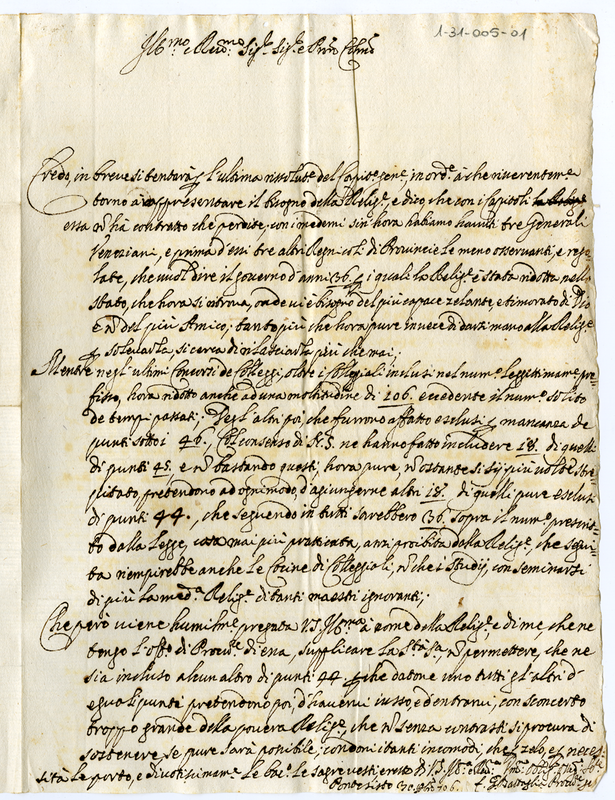 1-31-005-01
Ill.mo e Rev.mo Sig.r Sig.r e P.ron Col.mo
Credo, in breve si tentarà l'ultima rissolut.e del Capit. gen.e, in ord.e à che riverentem.e
torno à rappresentare il bisogno della Relig.e, e dico, che con i Capitoli
essa n̄ hà contratto che perdite, con i medemi sin hora habiamo havuti tre Generali
Veneziani, e prima d'essi tre altri Regnicoli di Provincie le meno osservanti, e rego
late, che vuol dire il governo d'anni 36. i quali la Relig.e è stata ridotta nello
stato, che hora si ritrova, onde vi è bisogno del più capace zelante, e timorato di Dio
e n̄ del più Amico; tanto più che hora pure invece di darsi mano alla Relig.e
p solevarla, si cerca di rilasciarla più che mai;
Mentre negl'ultimi Concorsi de Collegij, oltre i Collegiali inclusi nel num.o legittimam.e pre
fisso, hora ridotto anche ad una moltitudine di 106. eccedente il num.o solito
de tempi passati; Degl'altri poi che furrono affatto esclusi p mancanza de
punti sotto i 46., Col consenso di N.S. ne hanno fatto includere 18. di quelli
di punti 45. e n̄ bastando questi, hora pure, n̄ ostante si sij più volte
plicato, pretendono ad ogni modo, d'agiungerne altri 18. di quelli pure esclusi
di punti 44., che seguendo in tutti sarebbero 36. sopra il num.o prescrit
to dalla Legge, cosa mai più praticata, anzi proibita dalla Relig.e, che segui
ta riempirebbe anche le Cocine di Collegiali, n̄ che i Studij, con seminarsi
di più la med.a Relig.e di tanti maestri ignoranti;
Che però viene humilm.e pregata V.S. Ill.ma à nome della Relig.e, e di me, che ne
tengo l'off.o di Procu.re di essa, supplicare la Stà Sa, n̄ permettere, che ne
sia incluso alcun altro di punti 44. che datone uno tutti gl'altri d'
eguali punti pretendono poi, d'havervi iusso ed entrarvi, con sconcerto
troppo grande della povera Relig.e, che n̄ senza contrasti si procura di
sostenere se pure sarà possibile; condoni i tanti incomodi, che il zelo, e neces
sità le porto, e divotissimam.e le bacio le sagre vesti, e resto di V.S. Ill.ma